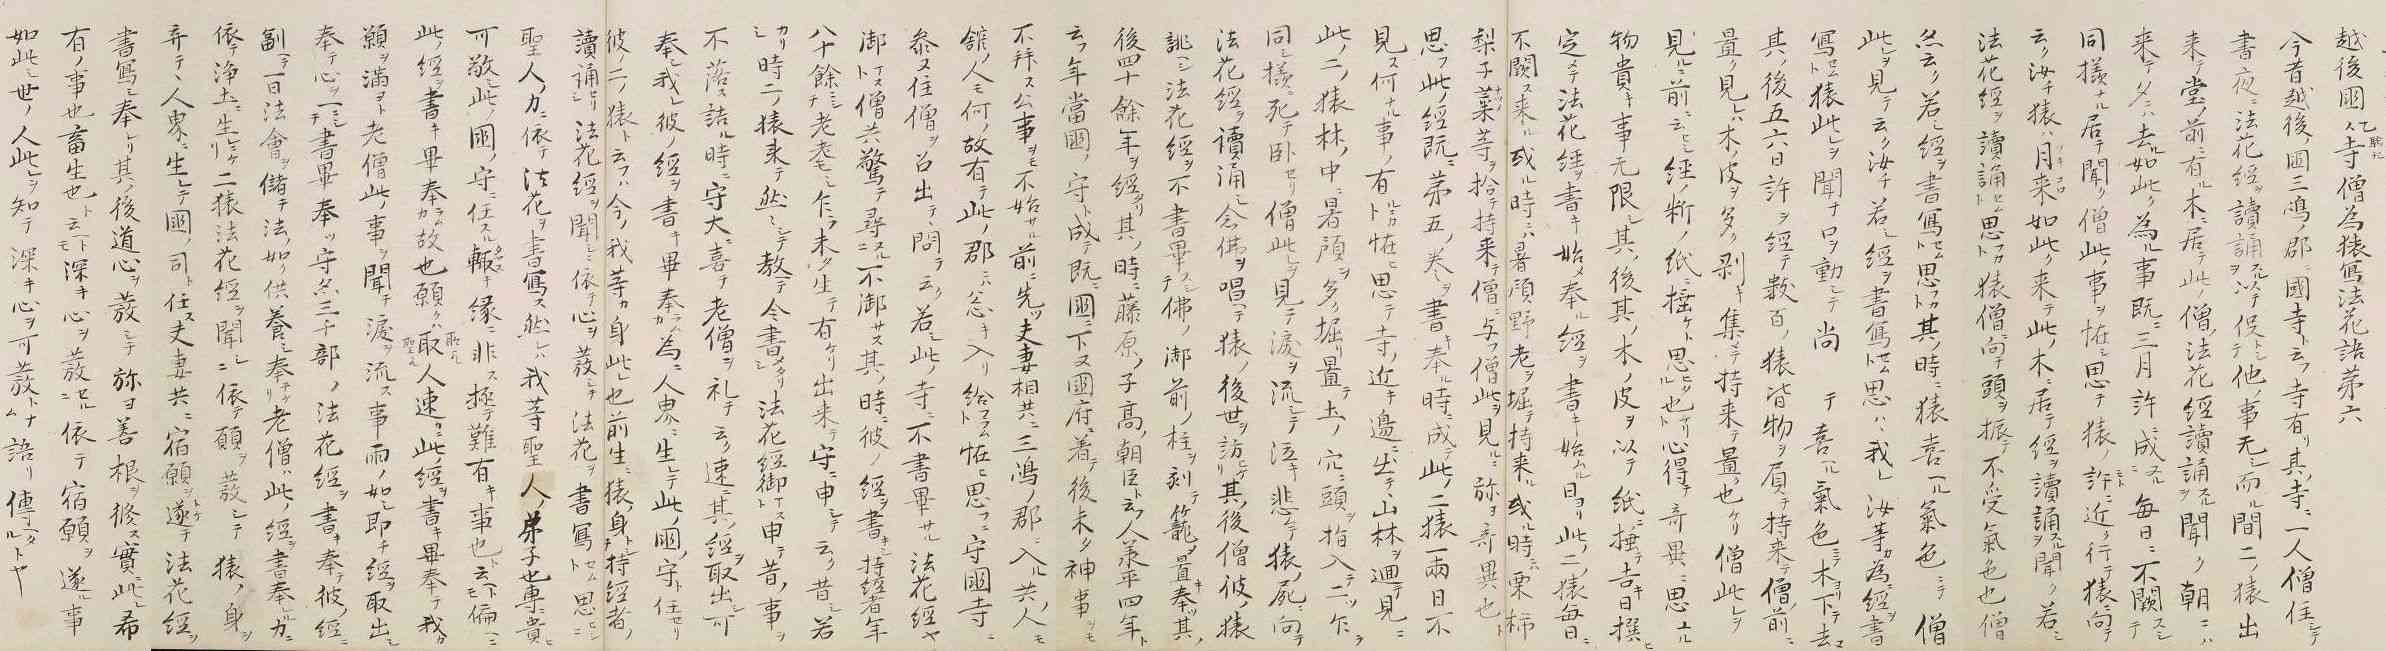 越後國乙寺僧為猿寫法花語第六
今昔越後ノ國三嶋ノ郡ニ國寺ト云フ寺有リ其ノ寺ニ一人僧住シテ
晝夜ニ法花経ヲ讀誦スルヲ以テ役トシテ他ノ事无シ而ル間二ノ猿出
来テ堂ノ前ニ有ル木ニ居テ此ノ僧ノ法花経讀誦スルヲ聞ク朝ニハ
来テタニハ去ル如此ク為ル事既ニ三月許ニ成ヌルニ毎日ニ不闕スシテ
同様ナル居テ聞ク僧此ノ事ヲ怪シミ思テ猿ノ許ニ近ク行テ猿ニ向テ
云ク汝チ猿ハ月来如此ク来テ此ノ木ニ居テ経ヲ讀誦スルヲ聞ク若シ
法花経ヲ讀誦セムト思フカト猿僧ニ向テ頭ヲ振テ不受氣色也僧
亦云ク若シ経ヲ書寫セムト思フカト其ノ時ニ猿喜ヘル氣色ニテ僧
此レヲ見テ云ク汝チ若シ経ヲ書寫セムト思ハ、我レ汝等カ為ニ経ヲ書
寫セムト猿此レヲ聞テ口ヲ動シテ尚テ喜ヘル氣色ニテ木ヨリ下テ去ヌ
其ノ後五六日許ヲ経テ數百ノ猿皆物ヲ肩テ持来テ僧ノ前ニ
置ク見レハ木ノ皮ヲ多ク剥キ集メテ持来テ置ク也ケリ僧此レヲ
見ルニ前ニ云ヒシ経ノ𣂰ノ紙ニ搥ケト思ヒケル也ト心得テ奇異ニ思ユル
物貴キ事无限シ其ノ後其ノ木ノ皮ヲ以テ紙ニ搥テ吉日撰ヒ
定メテ法花経ヲ書キ始メ奉ル経ヲ書キ始ムル日ヨリ此ノ二ノ猿毎日ニ
不闕ス来ル或ル時ニハ暑預野老ヲ堀テ持来ル或ル時ニハ栗柿
梨子菓等ヲ拾テ持来テ僧ニ与フ僧此ヲ見ルニ弥ヨ奇異也ト
思フ此ノ経既ニ第五ノ巻ヲ書キ奉ル時ニ成テ此ノ二猿一兩日不
見ス何ナル事ノ有ルカト恠ヒ思テ寺ノ近キ邊ニ出テ、山林ヲ廻テ見ニ
此ノ二ノ猿林ノ中ニ暑預ヲ多ク堀リ置テ土ノ穴ニ頭ヲ指入テ二ツ乍ラ
同シ様ニ死テ卧セリ僧此レヲ見テ涙ヲ流シテ泣キ悲ムテ猿ノ屍ニ向テ
法花経ヲ讀誦シ念佛ヲ唱テ猿ノ後世ヲ訪ヒケリ其ノ後僧彼ノ猿
誂ヘシ法花経ヲ不書畢スシテ佛ノ御前ノ柱ヲ刻テ籠メ置キ奉ツ其ノ
後四十餘年ヲ経タリ其ノ時ニ藤原ノ子高ノ朝臣ト云フ人承平四年ト
云フ年當國ノ守ト成テ既ニ國ニ下ヌ國府ニ着テ後未タ神事ヲモ
不拜ス公事ヲモ不始サル前ニ先ツ夫妻相共ニ三嶋ノ郡ニ入ル共ノ人モ
館ノ人モ何ノ故有テ此ノ郡ニハ忩キ入リ給フラムト恠ヒ思フニ守國寺ニ
参ヌ住僧ヲ召出テ問テ云ク若シ此ノ寺ニ不書畢サル法花経ヤ
御スト僧共驚テ尋スルニ不御サス其ノ時ニ彼ノ経ヲ書キシ持経者年
八十餘ニシテ老耄シ乍ラ未タ生テ有ケリ出来テ守ニ申シテ云ク昔シ若
カリシ時二ノ猿来テ然シテ教テ令書メタリシ法花経御スト申テ昔ノ事ヲ
不落ス語ル時ニ守大ニ喜テ老僧ヲ礼テ云ク速ニ其ノ経ヲ取出シ可
奉シ我レ彼ノ経ヲ書キ畢奉ラムカ為ニ人界ニ生レテ此ノ國ノ守ト任セリ
彼ノ二ノ猿ト云フハ今ノ我等カ身此レ也前生ニ猿ノ身トシテ持経者ノ
讀誦セリシ法花経ヲ聞シニ依テ心ヲ發シテ法花ヲ書寫セムト思ヒシニ
聖人ノ力ニ依テ法花ヲ書寫ス然レハ我等聖人ノ弟子也専ニ貴ヒ
可敬シ此ノ國ノ守ニ任スル輙キ縁ニ非ス極テ難有キ事也ト云ヘトモ偏ニ
此ノ経ヲ書キ畢奉ラムカ故也願クハ聖人速ニ此経ヲ書キ畢奉テ我カ
願ヲ満ヨト老僧此ノ事ヲ聞テ涙ヲ流ス事雨ノ如シ即チ経ヲ取出シ
奉テ心ヲ一ニシテ書畢奉ツ守亦三千部ノ法花経ヲ書キ奉テ彼ノ経ニ
副ヘテ一日法會ヲ儲テ法ノ如ク供養シ奉テケリ老僧ハ此ノ経ヲ書奉ル力ニ
依テ浄土ニ生レニケリ二猿法花経ヲ聞シニ依テ願ヲ發シテ猿ノ身ヲ
弃テ、人界ニ生レテ國ノ司ト任ス夫妻共ニ宿願ヲ遂テ法花経ヲ
書寫シ奉レリ其ノ後道心ヲ發シテ弥ヨ善根ヲ修ス實ニ此レ希
有ノ事也畜生也ト云ヘトモ深キ心ヲ發セルニ依テ宿願ヲ遂ル事
如此シ世ノ人此レヲ知テ深キ心ヲ可發トナム語リ傳ヘタルトヤ